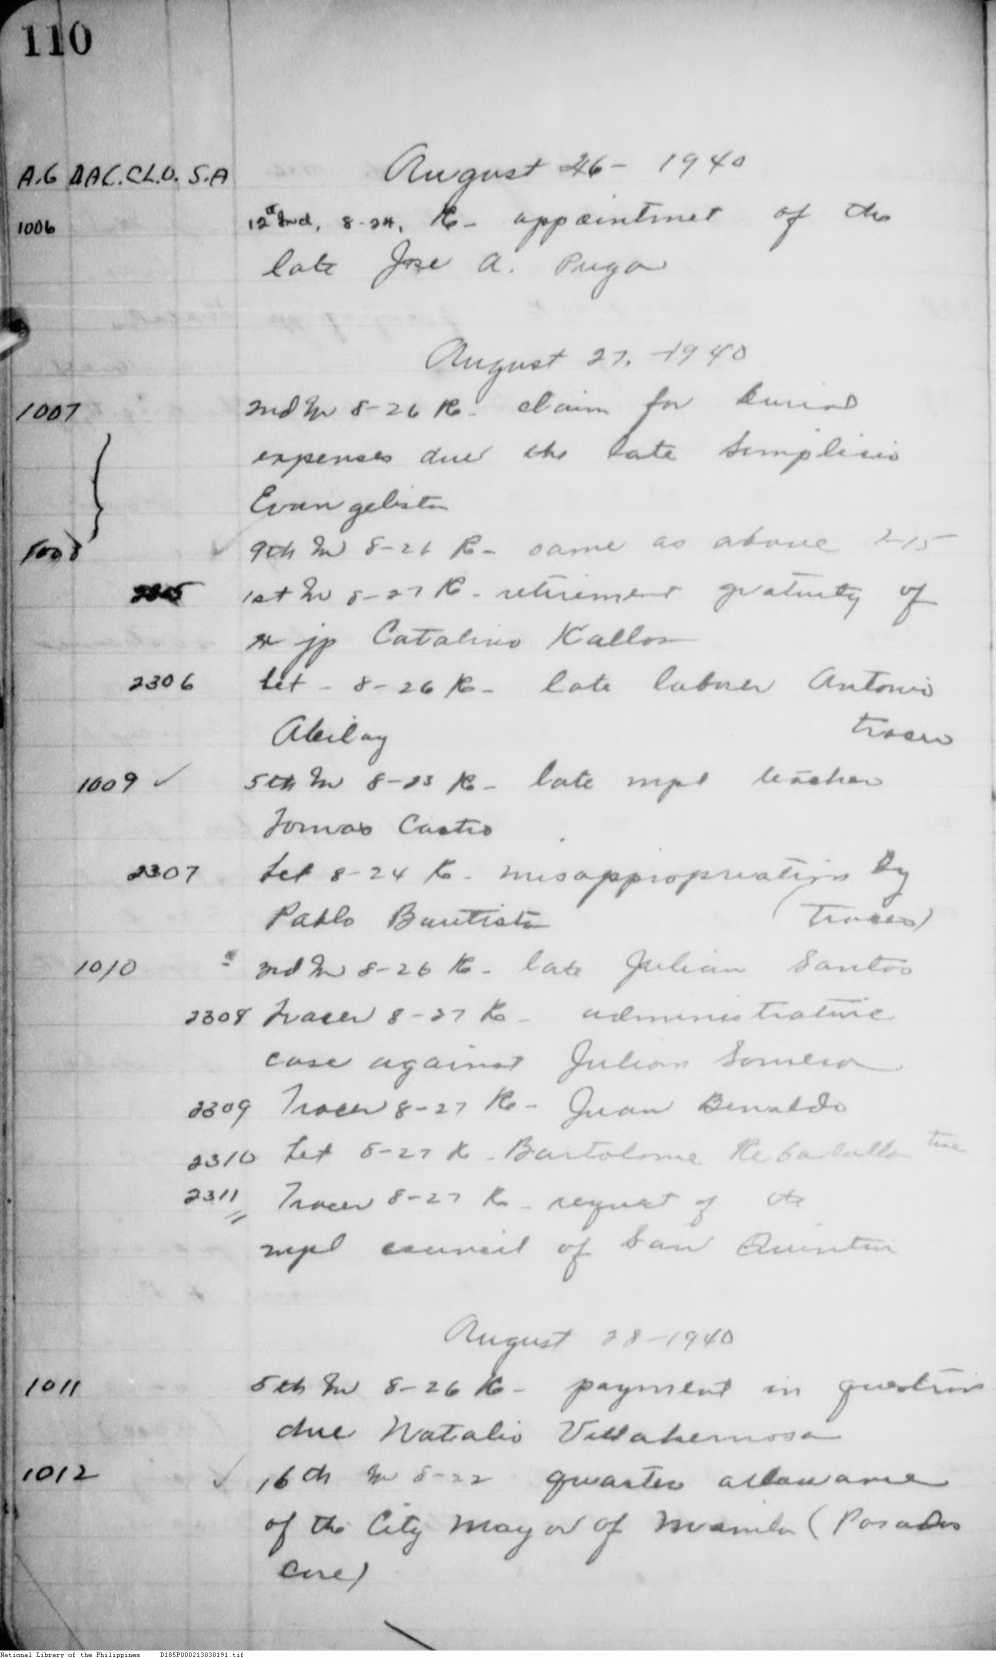 110
A.G AAC. CL.O. S.A
August 26 - 1940
1006 12th Ind, 8-24, K - appointmet of the
late Jose A. Puga
August 27, - 1940
1007 2nd In 8-26 K - claim for burial
expenses due the late Simplicio
Evangelista
1008 9th In 8-26 K - same as above 2-15
2305 1st In 8-27 K - retirement gratuity of
ex jp Catalino Kallos
2306 Let - 8-26 K - late laborer Antonio
Abilay tracer
1009 5th In 8-23 K - late mpl teacher
Tomas Castro
2307 Let 8-24 K - misappropriation by
Pablo Bautista (tracer)
1010 2nd In 8-26 K - late Julian Santos
2308 Tracer 8-27 K - administrative
case against Julian Somera
2309 Tracer 8-27 K - Juan Benaldo
2310 Let 8-27 K - Bartolome
2311 Tracer 8-27 K - request of the
mpl council of San Quintin
August 28 - 1940
1011 5th In 8-26 K - payment in question
due Natalio Villahermosa
1012 16th In 8-22 quarters allowance
of the City Mayor of Manila (Posadas
case)
National Library of the Philippines D185P000213838191.tif